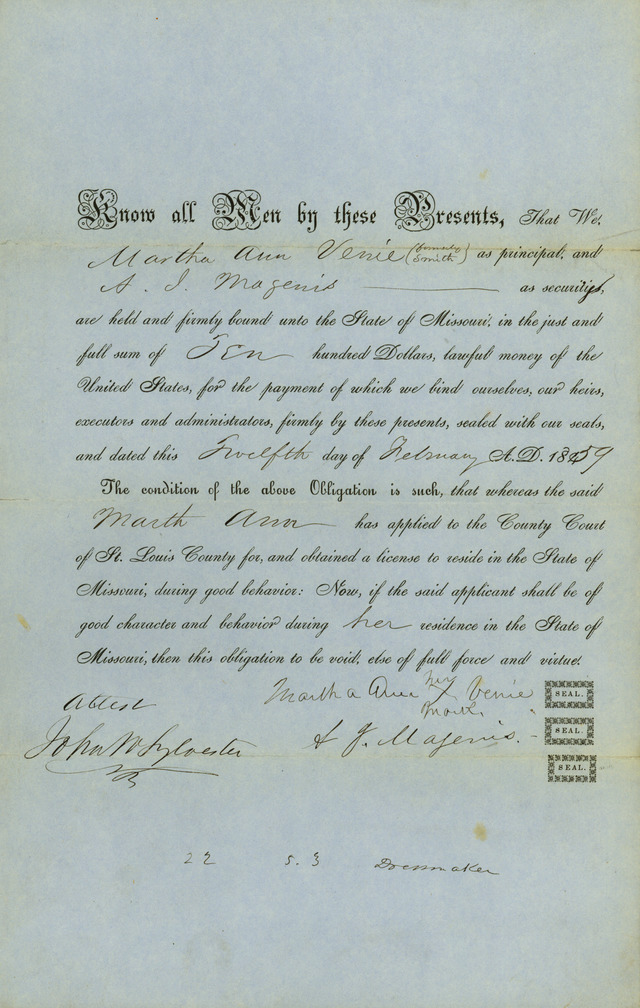 Know all Men by these Presents, That We,
Martha Ann Venie (formerly Smith) as principal, and
A. J. Magenis as securities,
are held and firmly bound unto the State of Missouri, in the just and
full sum of Ten hundred Dollars, lawful money of the
United States, for the payment of which we bind ourselves, our heirs,
executors and administrators, firmly by these presents, sealed with our seals,
and dated this Twelfth day of February A.D. 1859
The condition of the above Obligation is such, that whereas the said
Marth Ann has applied to the County Court
of St. Louis County for, and obtained a license to reside in the State of
Missouri, during good behavior: Now, if the said applicant shall be of
good character and behavior during her residence in the State of
Missouri, then this obligation to be void, else of full force and virtue.
Attest
Martha Ann her X mark Venie SEAL.
John W Sylvester
A J. Magenis. SEAL.
SEAL.
22 5.3 Dressmaker